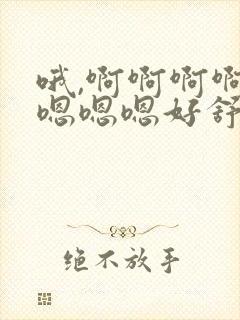 哦,啊啊啊啊
嗯嗯嗯好舒
绝不放手